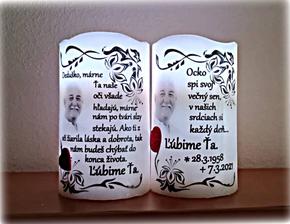 Deduško, márne
Ťa naše
oči všade
hľadajú, márne
nám po tvári slzy
stekajú. Ako ti z
očí žiarila láska a dobrota, tak
nám budeš chýbať do
konca života.
Ľúbime Ťa.
Ocko
spi svoj
večný sen,
v našich
srdciach si
každý deň...
Ľúbime Ťa
* 28.3.1958
+ 7.3.2021